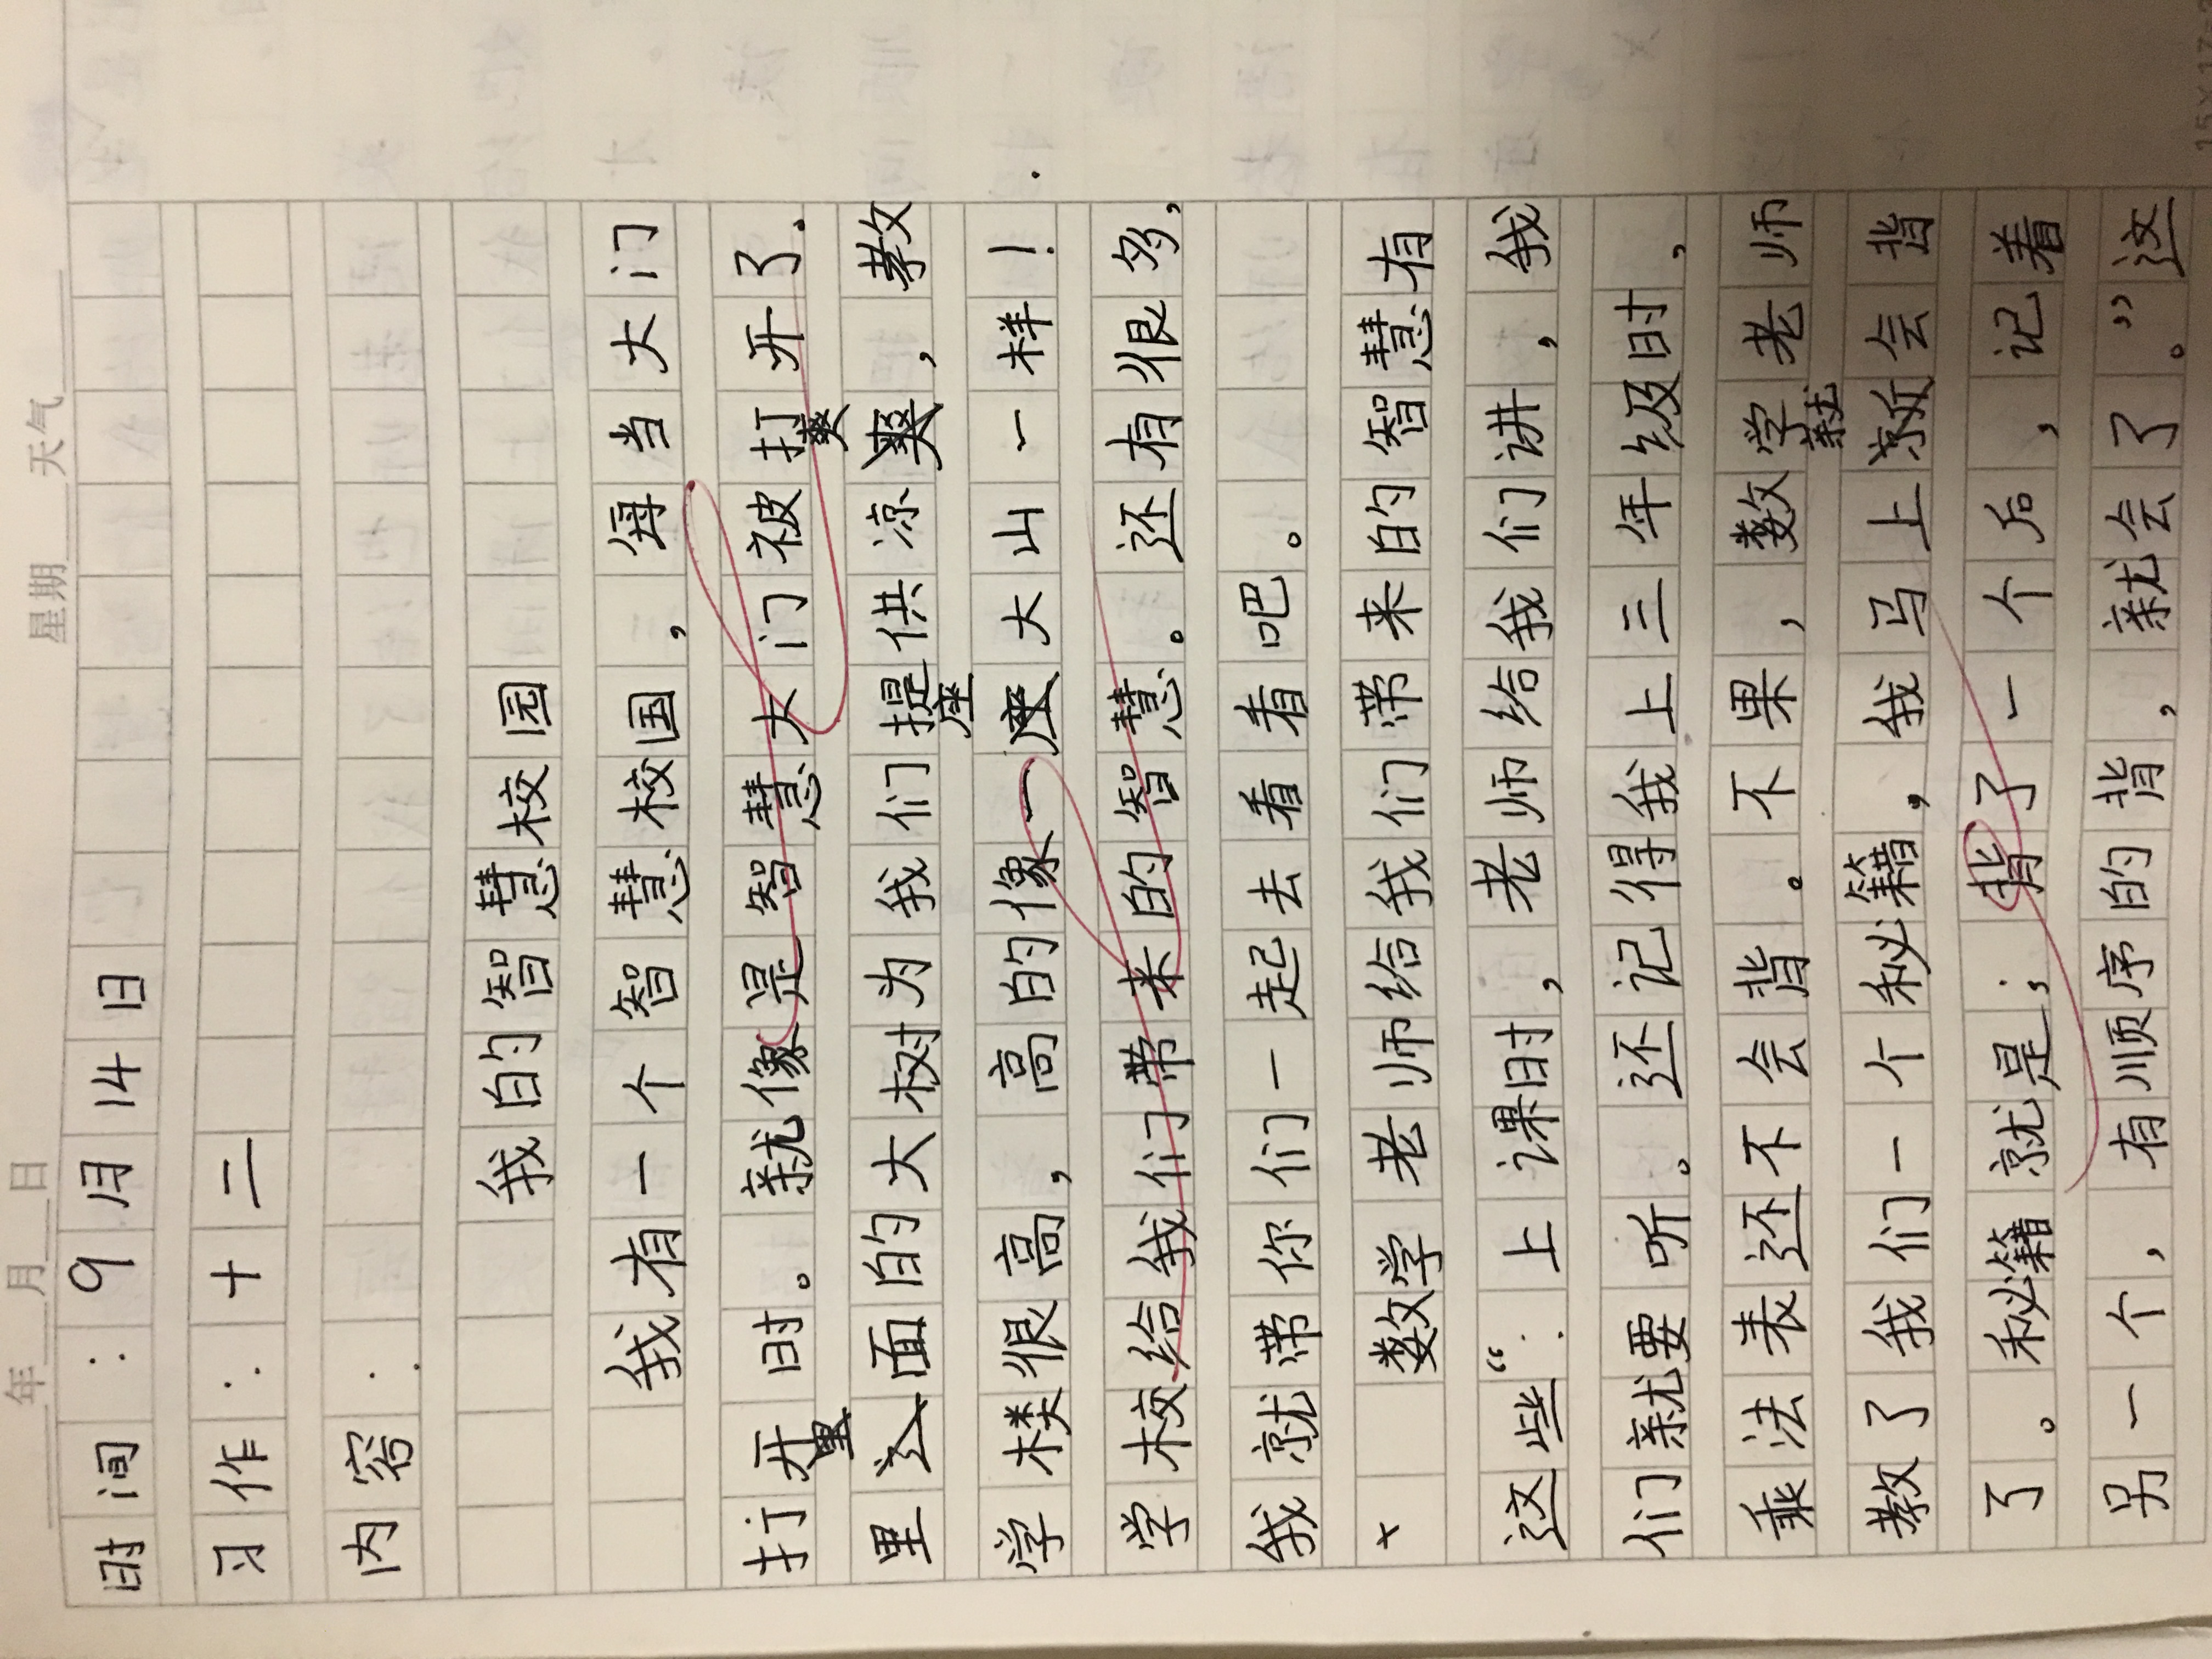 年 月 日 星期 天气
时间：9月14日
习作：十二
内容：
我的智慧校园
我有一个智慧校国，每当大门
打开时。就像是智慧大门被打开了。
里面的大树为我们提供凉爽，教
学楼很高，高的像一座大山一样！
学校给我们带来的智慧。还有很多，
我就带你们一起去看看吧。
数学老师给我们带来的智慧有
这些“：上课时，老师给我们讲，我
们就要听。还记得我上三年级时，
乘法表还不会背。不果，数学老师
教了我们一个秘籍，我马上就会背
了。秘籍就是：背了一个后，记着
另一个，有顺序的背，就会了。”这